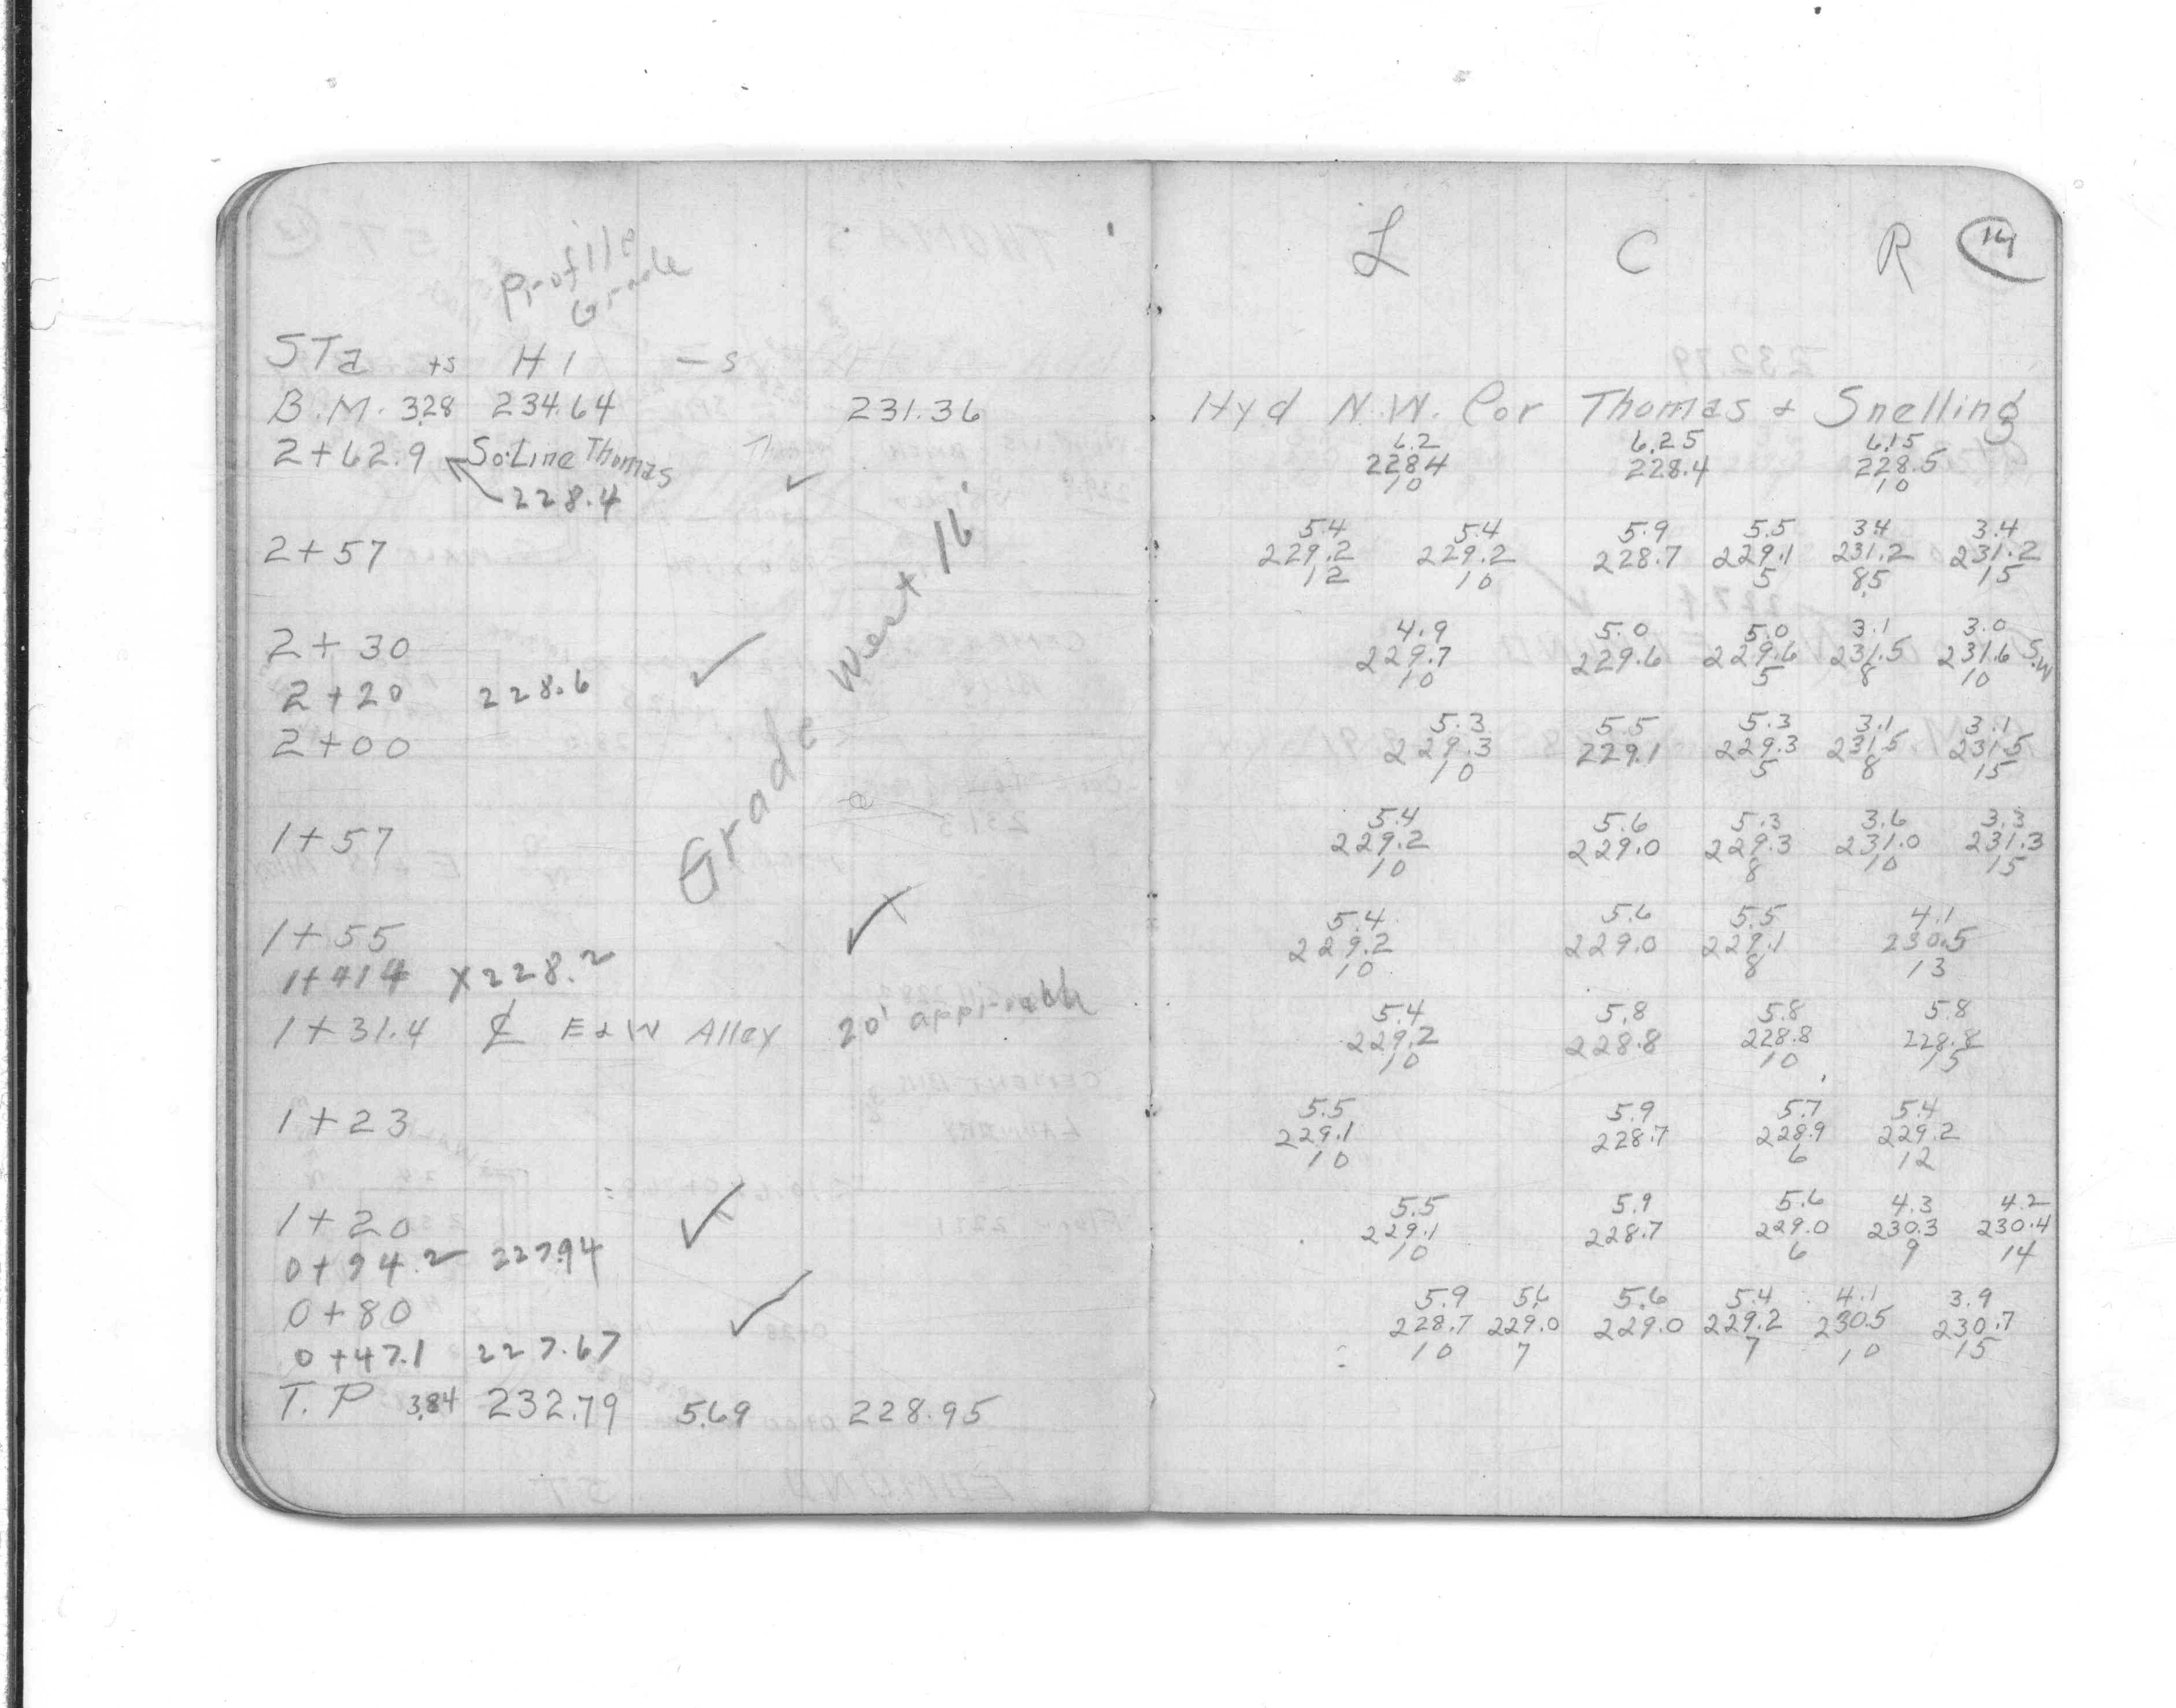 Profile
Grade
STa +s HI - s
B.M. 3.28 234.64 231.36
2+62.9 So. Line Thomas
228.4
2+57
2+30
2+20 228.6
2+00
1+57
1+55
1+41.4 X 228.2
1+31.4 ℄ E & W Alley 20' approach
1+23
1+20
0+94.2 227.94
0+80
0+47.1 227.67
T.P 3.84 232.79 5.69 228.95
Grade West 16'
L C R 14
Hyd N.W. Cor Thomas & Snelling
6.2 6.25 6.15
228.4 228.4 228.5
10 10
5.4 5.4 5.9 5.5 3.4 3.4
229.2 229.2 228.7 229.1 231.2 231.2
12 10 5 8.5 15
4.9 5.0 5.0 3.1 3.0
229.7 229.6 229.6 231.5 231.6 S.W
10 5 8 10
5.3 5.5 5.3 3.1 3.1
229.3 229.1 229.3 231.5 231.5
10 5 8 15
5.4 5.6 5.3 3.6 3.3
229.2 229.0 229.3 231.0 231.3
10 8 10 15
5.4 5.6 5.5 4.1
229.2 229.0 229.1 230.5
10 8 13
5.4 5.8 5.8 5.8
229.2 228.8 228.8 228.8
10 10 15
5.5 5.9 5.7 5.4
229.1 228.7 228.9 229.2
10 6 12
5.5 5.9 5.6 4.3 4.2
229.1 228.7 229.0 230.3 230.4
10 6 9 14
5.9 5.6 5.6 5.4 4.1 3.9
228.7 229.0 229.0 229.2 230.5 230.7
10 7 7 10 15